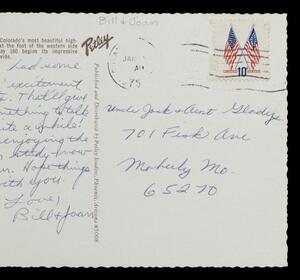 Bill & Joan
Colorado's most beautiful high-
at the foot of the western side
ay 160 begins its impressive
wide.
Petley
JAN
AM
75
10¢
had some
excitement
s. That'll give
mething to talk
ite a while!
enjoying the
study-now
n. Hope things
with you.
Love,
Bill & Joan
Published and Distributed by Petley Studios, Phoenix, Arizona 85008
Uncle Jack & Aunt Gladys
701 Fisk Ave
Moberly Mo.
65270